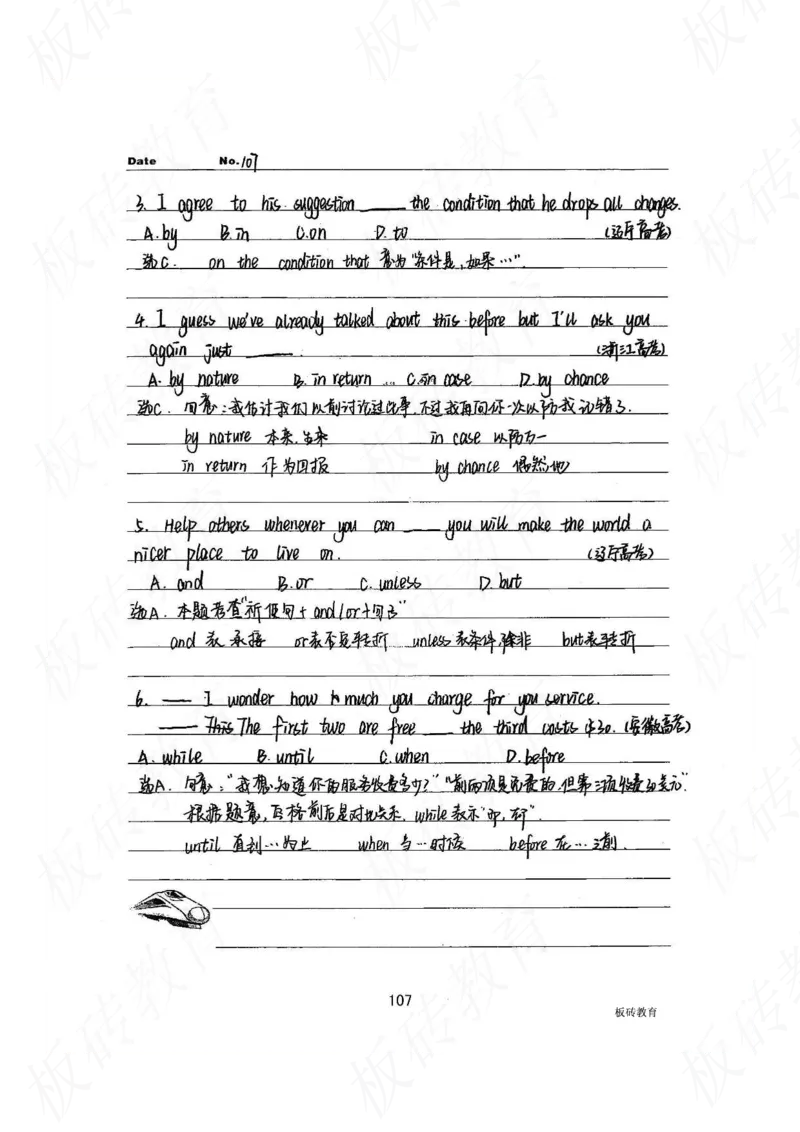 Date No.107
3. I agree to his suggestion ____ the condition that he drops all changes.
A.by B.in C.on D.to (辽宁高考)
选C. on the condition that 意为"条件是,如果…".
4. I guess we've already talked about this before but I'll ask you
again just ____. (浙江高考)
A. by nature B. in return C.in case D.by chance
选C. 句意:我估计我们以前讨论过此事,不过我再问你一次以防我记错了.
by nature 本来,生来 in case 以防万一
in return 作为回报 by chance 偶然地
5. Help others whenever you can ____ you will make the world a
nicer place to live on. (辽宁高考)
A. and B.or C. unless D. but
选A. 本题考查"祈使句+and/or+句子"
and 表承接 or表否定转折 unless 表条件,除非 but表转折
6. — I wonder how much you charge for you service.
— The first two are free ____ the third costs $30. (安徽高考)
A. while B. until C. when D. before
选A. 句意:"我想知道你的服务收费多少?" "前两项是免费的,但第三项收费30美元".
根据题意,空格前后是对比关系, while 表示"而,却".
until 直到…为止 when 当…时候 before 在…之前.
107
板砖教育